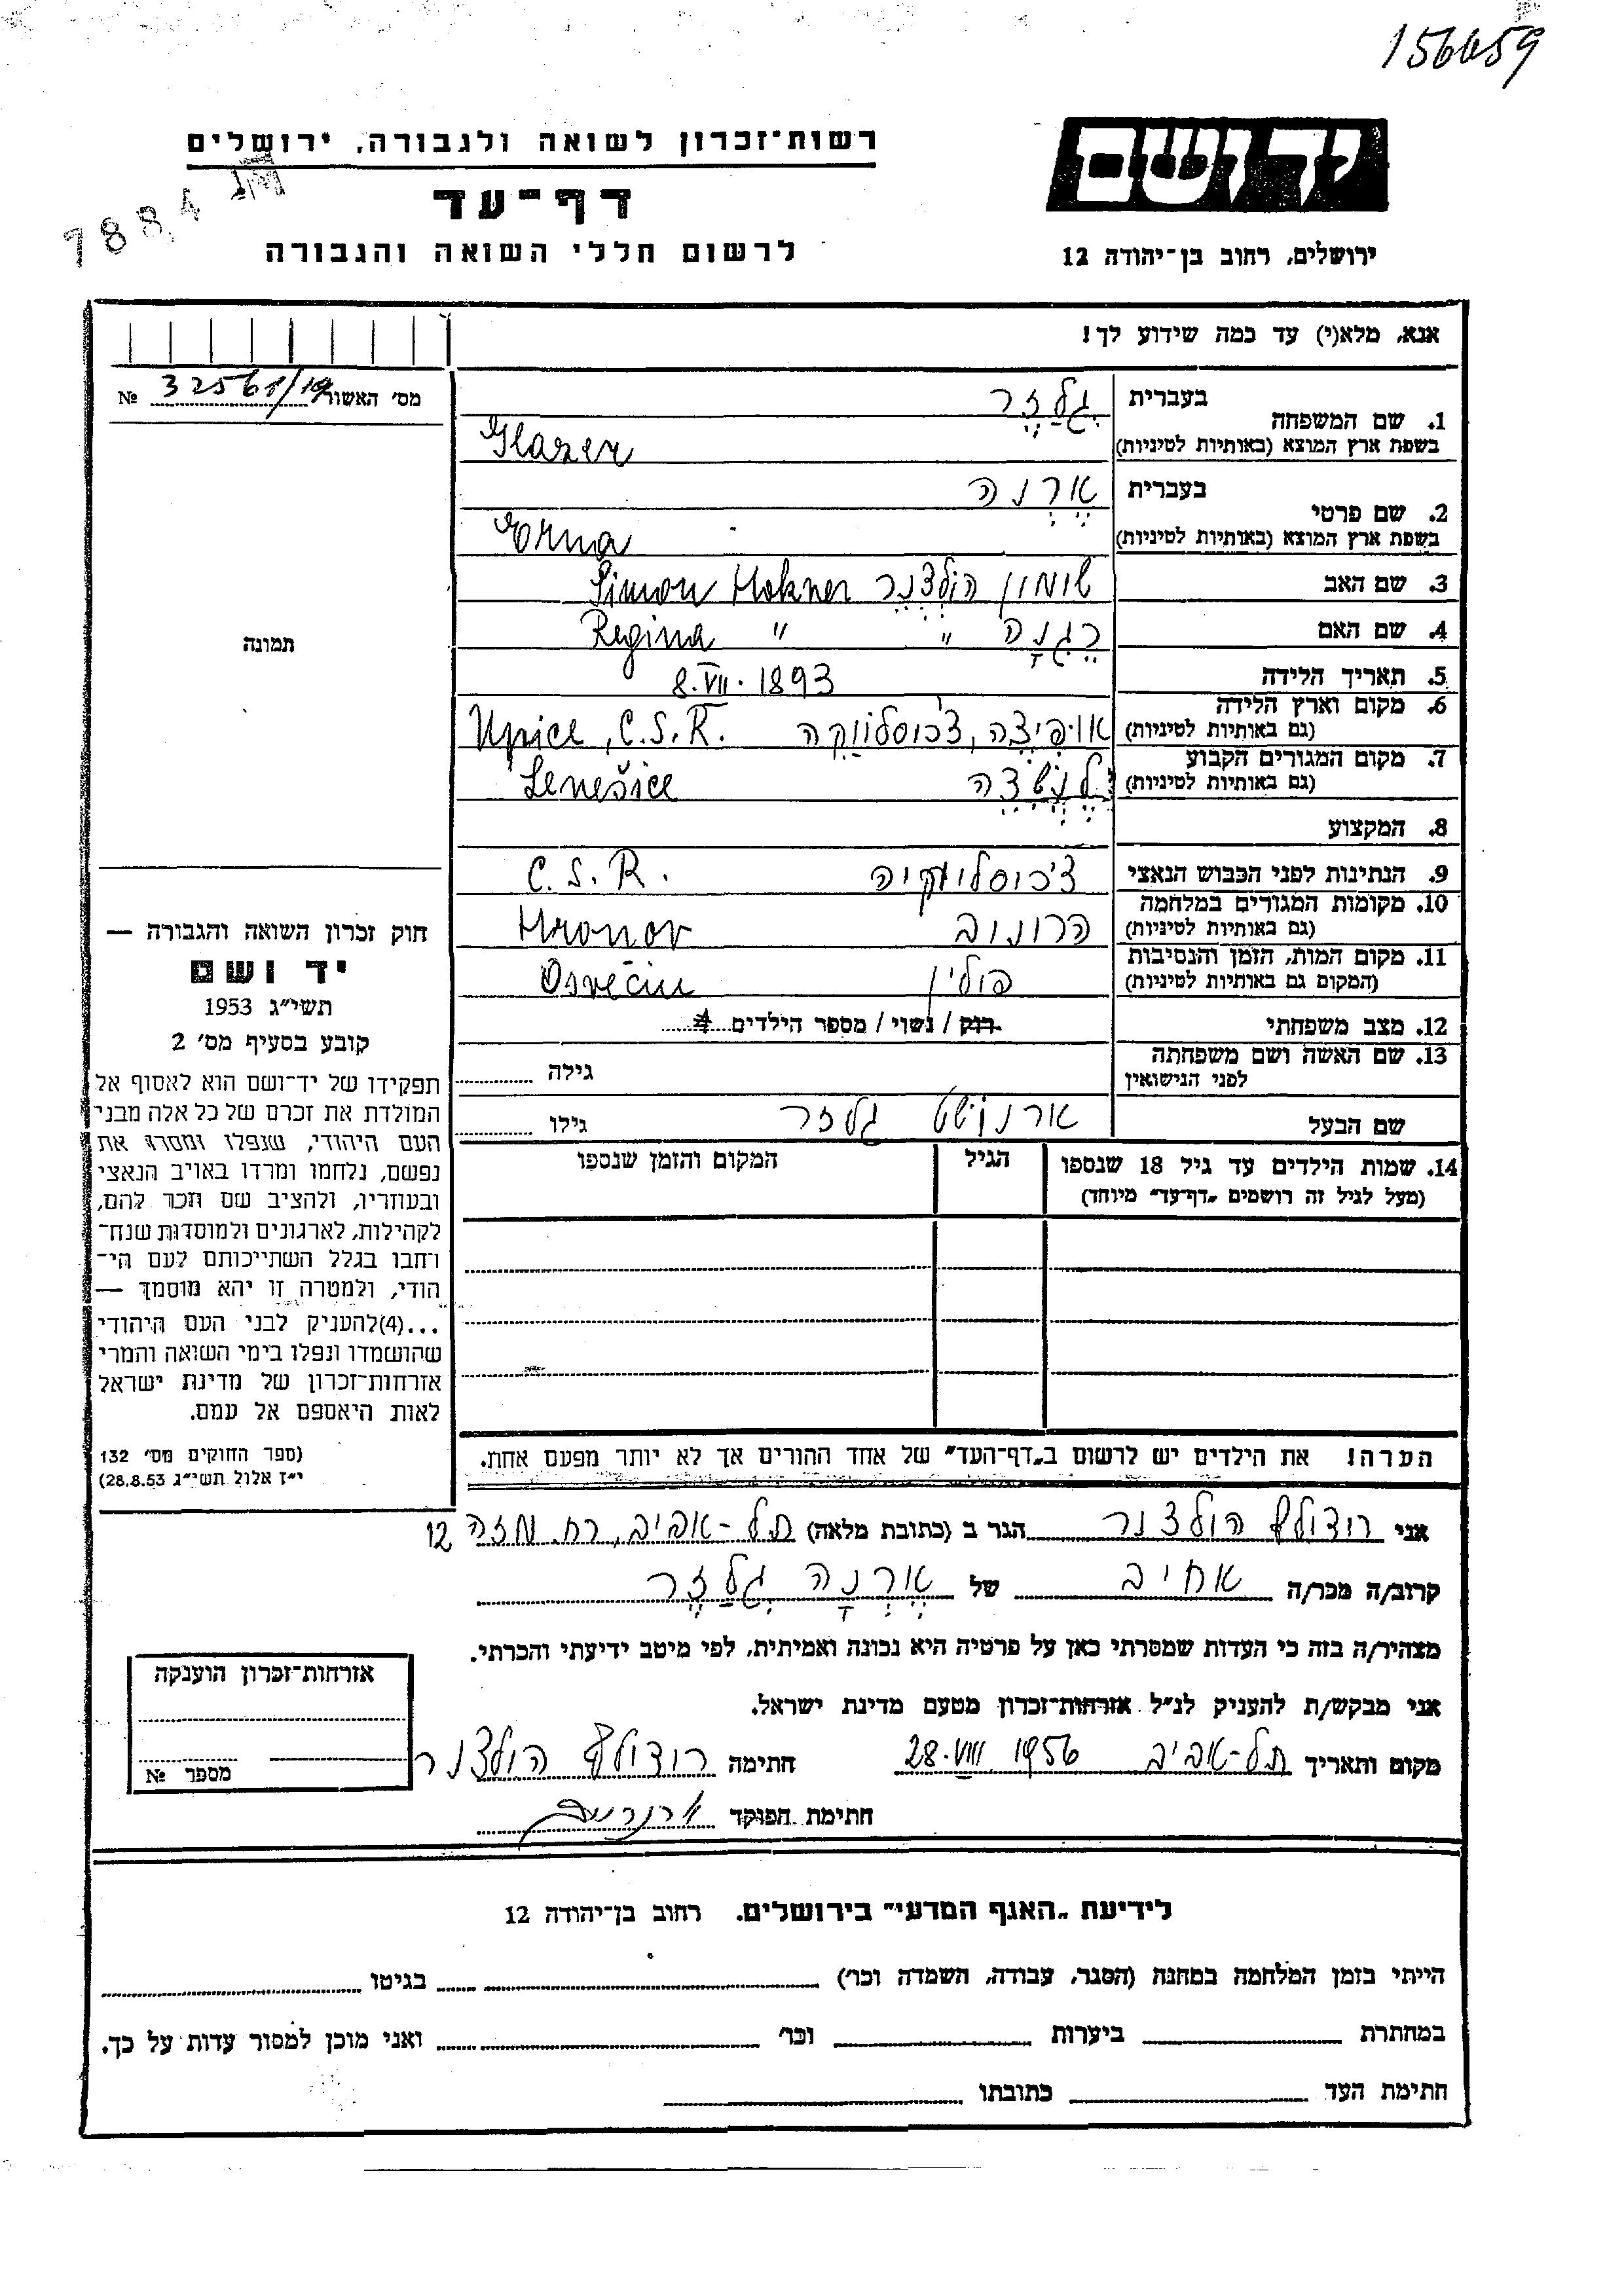 156659
יד ושם
רשות־זכרון לשואה ולגבורה, ירושלים
דף־עד
לרשום חללי השואה והגבורה
ירושלים, רחוב בן־יהודה 12
7884
אנא, מלא(י) עד כמה שידוע לך!
מס׳ האשור № 32561/19
1. שם המשפחה
בעברית גִלַזֶר
בשפת ארץ המוצא (באותיות לטיניות) Glazer
2. שם פרטי
בעברית אֶרְנָה
בשפת ארץ המוצא (באותיות לטיניות) Erna
3. שם האב שימון הולצנר Simon Holzner
4. שם האם רֶגִנָה " Regina "
5. תאריך הלידה 8.VII.1893
6. מקום וארץ הלידה (גם באותיות לטיניות) אופיצה, צ׳כוסלווקיה Upice, C.S.R.
7. מקום המגורים הקבוע (גם באותיות לטיניות) לֶנֶשִצֶה Lenešice
8. המקצוע
9. הנתינות לפני הכבוש הנאצי צ׳כוסלווקיה C.S.R.
10. מקומות המגורים במלחמה (גם באותיות לטיניות) הרונוב Hronov
11. מקום המות, הזמן והנסיבות (המקום גם באותיות לטיניות) פולין Osvěčin
12. מצב משפחתי רוק / נשוי / מספר הילדים
13. שם האשה ושם משפחתה לפני הנישואין גילה
שם הבעל ארנושט גלזר גילו
14. שמות הילדים עד גיל 18 שנספו (מעל לגיל זה רושמים „דף־עד” מיוחד)
הגיל
המקום והזמן שנספו
הערה! את הילדים יש לרשום ב„דף־העד” של אחד ההורים אך לא יותר מפעם אחת.
תמונה
חוק זכרון השואה והגבורה —
יד ושם
תשי״ג 1953
קובע בסעיף מס׳ 2
תפקידו של יד־ושם הוא לאסוף אל
המולדת את זכרם של כל אלה מבני
העם היהודי, שנפלו ומסרו את
נפשם, נלחמו ומרדו באויב הנאצי
ובעוזריו, ולהציב שם וזכר להם,
לקהילות, לארגונים ולמוסדות שנח־
רחבו בגלל השתייכותם לעם הי־
הודי, ולמטרה זו יהא מוסמך —
...(4)להעניק לבני העם היהודי
שהושמדו ונפלו בימי השואה והמרי
אזרחות־זכרון של מדינת ישראל
לאות היאספם אל עמם.
(ספר החוקים מס׳ 132
י״ז אלול תשי״ג 28.8.53)
אני רודולף הולצנר הגר ב (כתובת מלאה) תל-אביב, רח. מזה 12
קרוב/ה מכר/ה אחיב של אֶרְנָה גִלַזֶר
מצהיר/ה בזה כי העדות שמסרתי כאן על פרטיה היא נכונה ואמיתית, לפי מיטב ידיעתי והכרתי.
אני מבקש/ת להעניק לנ״ל אזרחות־זכרון מטעם מדינת ישראל.
מקום ותאריך תל-אביב 28.VIII 1956 חתימה רודולף הולצנר
חתימת הפוקד
אזרחות־זכרון הוענקה
מספר №
לידיעת „האגף המדעי” בירושלים. רחוב בן־יהודה 12
הייתי בזמן המלחמה במחנה (הסגר, עבודה, השמדה וכר׳) בגיטו
במחתרת ביערות וכר׳ ואני מוכן למסור עדות על כך.
חתימת העד כתובתו